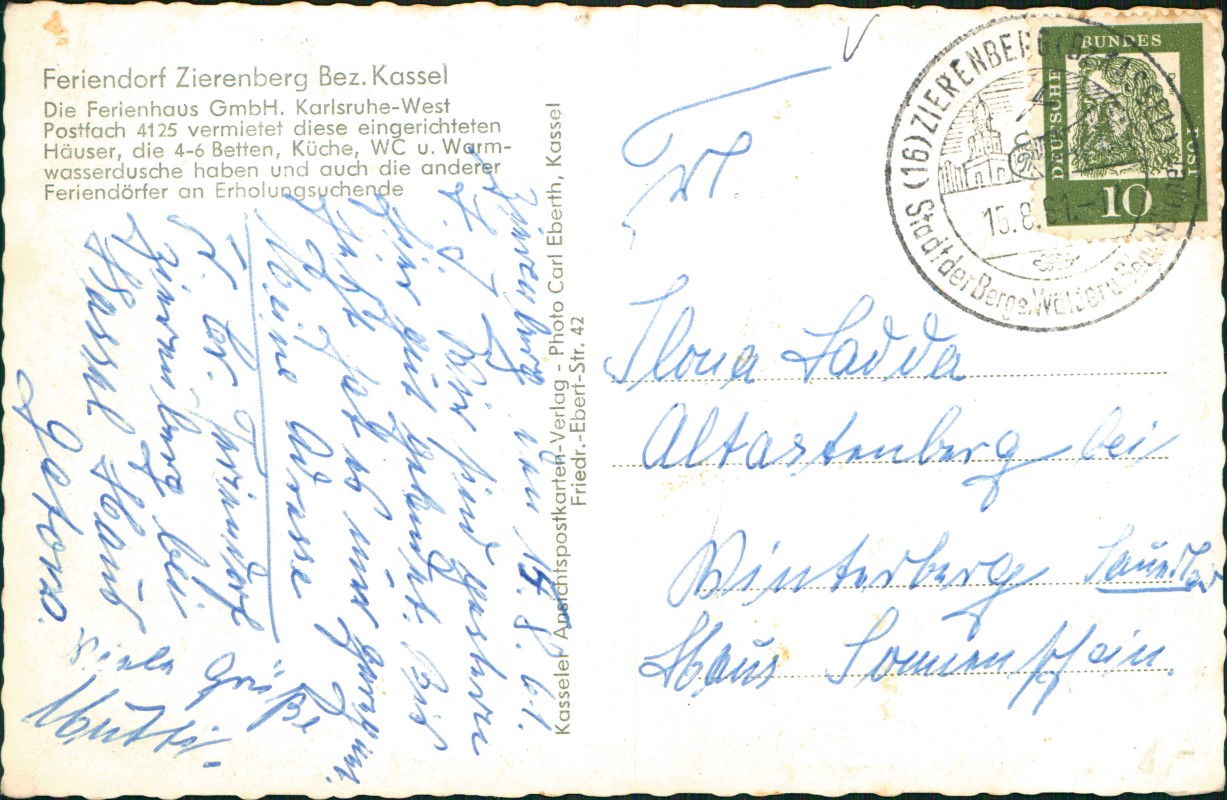 Feriendorf Zierenberg Bez. Kassel
Die Ferienhaus GmbH. Karlsruhe-West
Postfach 4125 vermietet diese eingerichteten
Häuser, die 4-6 Betten, Küche, WC u. Warm-
wasserdusche haben und auch die anderer
Feriendörfer an Erholungsuchende
Zierenberg den 14. 8. 61.
Wir sind gestern
hier gut gelandet. Bis
jetzt hat es nur geregnet.
Meine Adresse
Feriendorf
Zierenberg bei
Kassel Haus
Viele Grüße
Mutti.
Kasseler Ansichtspostkarten-Verlag - Photo Carl Eberth, Kassel
Friedr.-Ebert-Str. 42
(16) ZIERENBERG (BZ. KASSEL)
15.8.61.-
Stadt der Berge, Wälder u.
DEUTSCHE BUNDESPOST
10
Frl.
Ilona Ladda
Altastenberg bei
Winterberg Sauerland
Haus Sonnenschein.